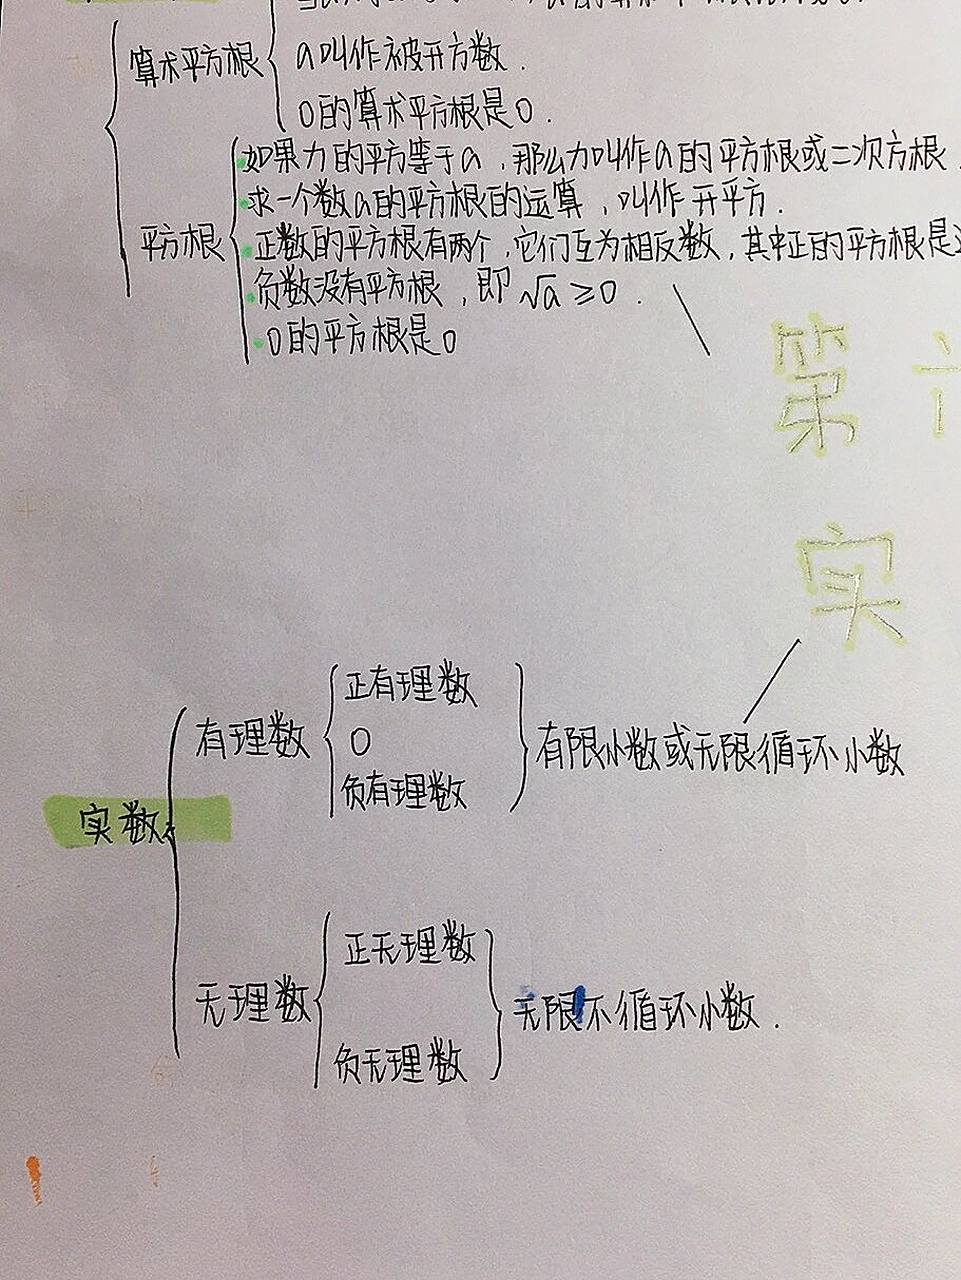 算术平方根
a叫作被开方数.
0的算术平方根是0.
平方根
·如果力的平方等于a,那么力叫作a的平方根或二次方根.
·求一个数a的平方根的运算,叫作开平方.
·正数的平方根有两个,它们互为相反数,其中正的平方根是
·负数没有平方根,即√a≥0.
·0的平方根是0
第
实
实数
有理数
正有理数
0
负有理数
有限小数或无限循环小数
无理数
正无理数
负无理数
无限不循环小数.